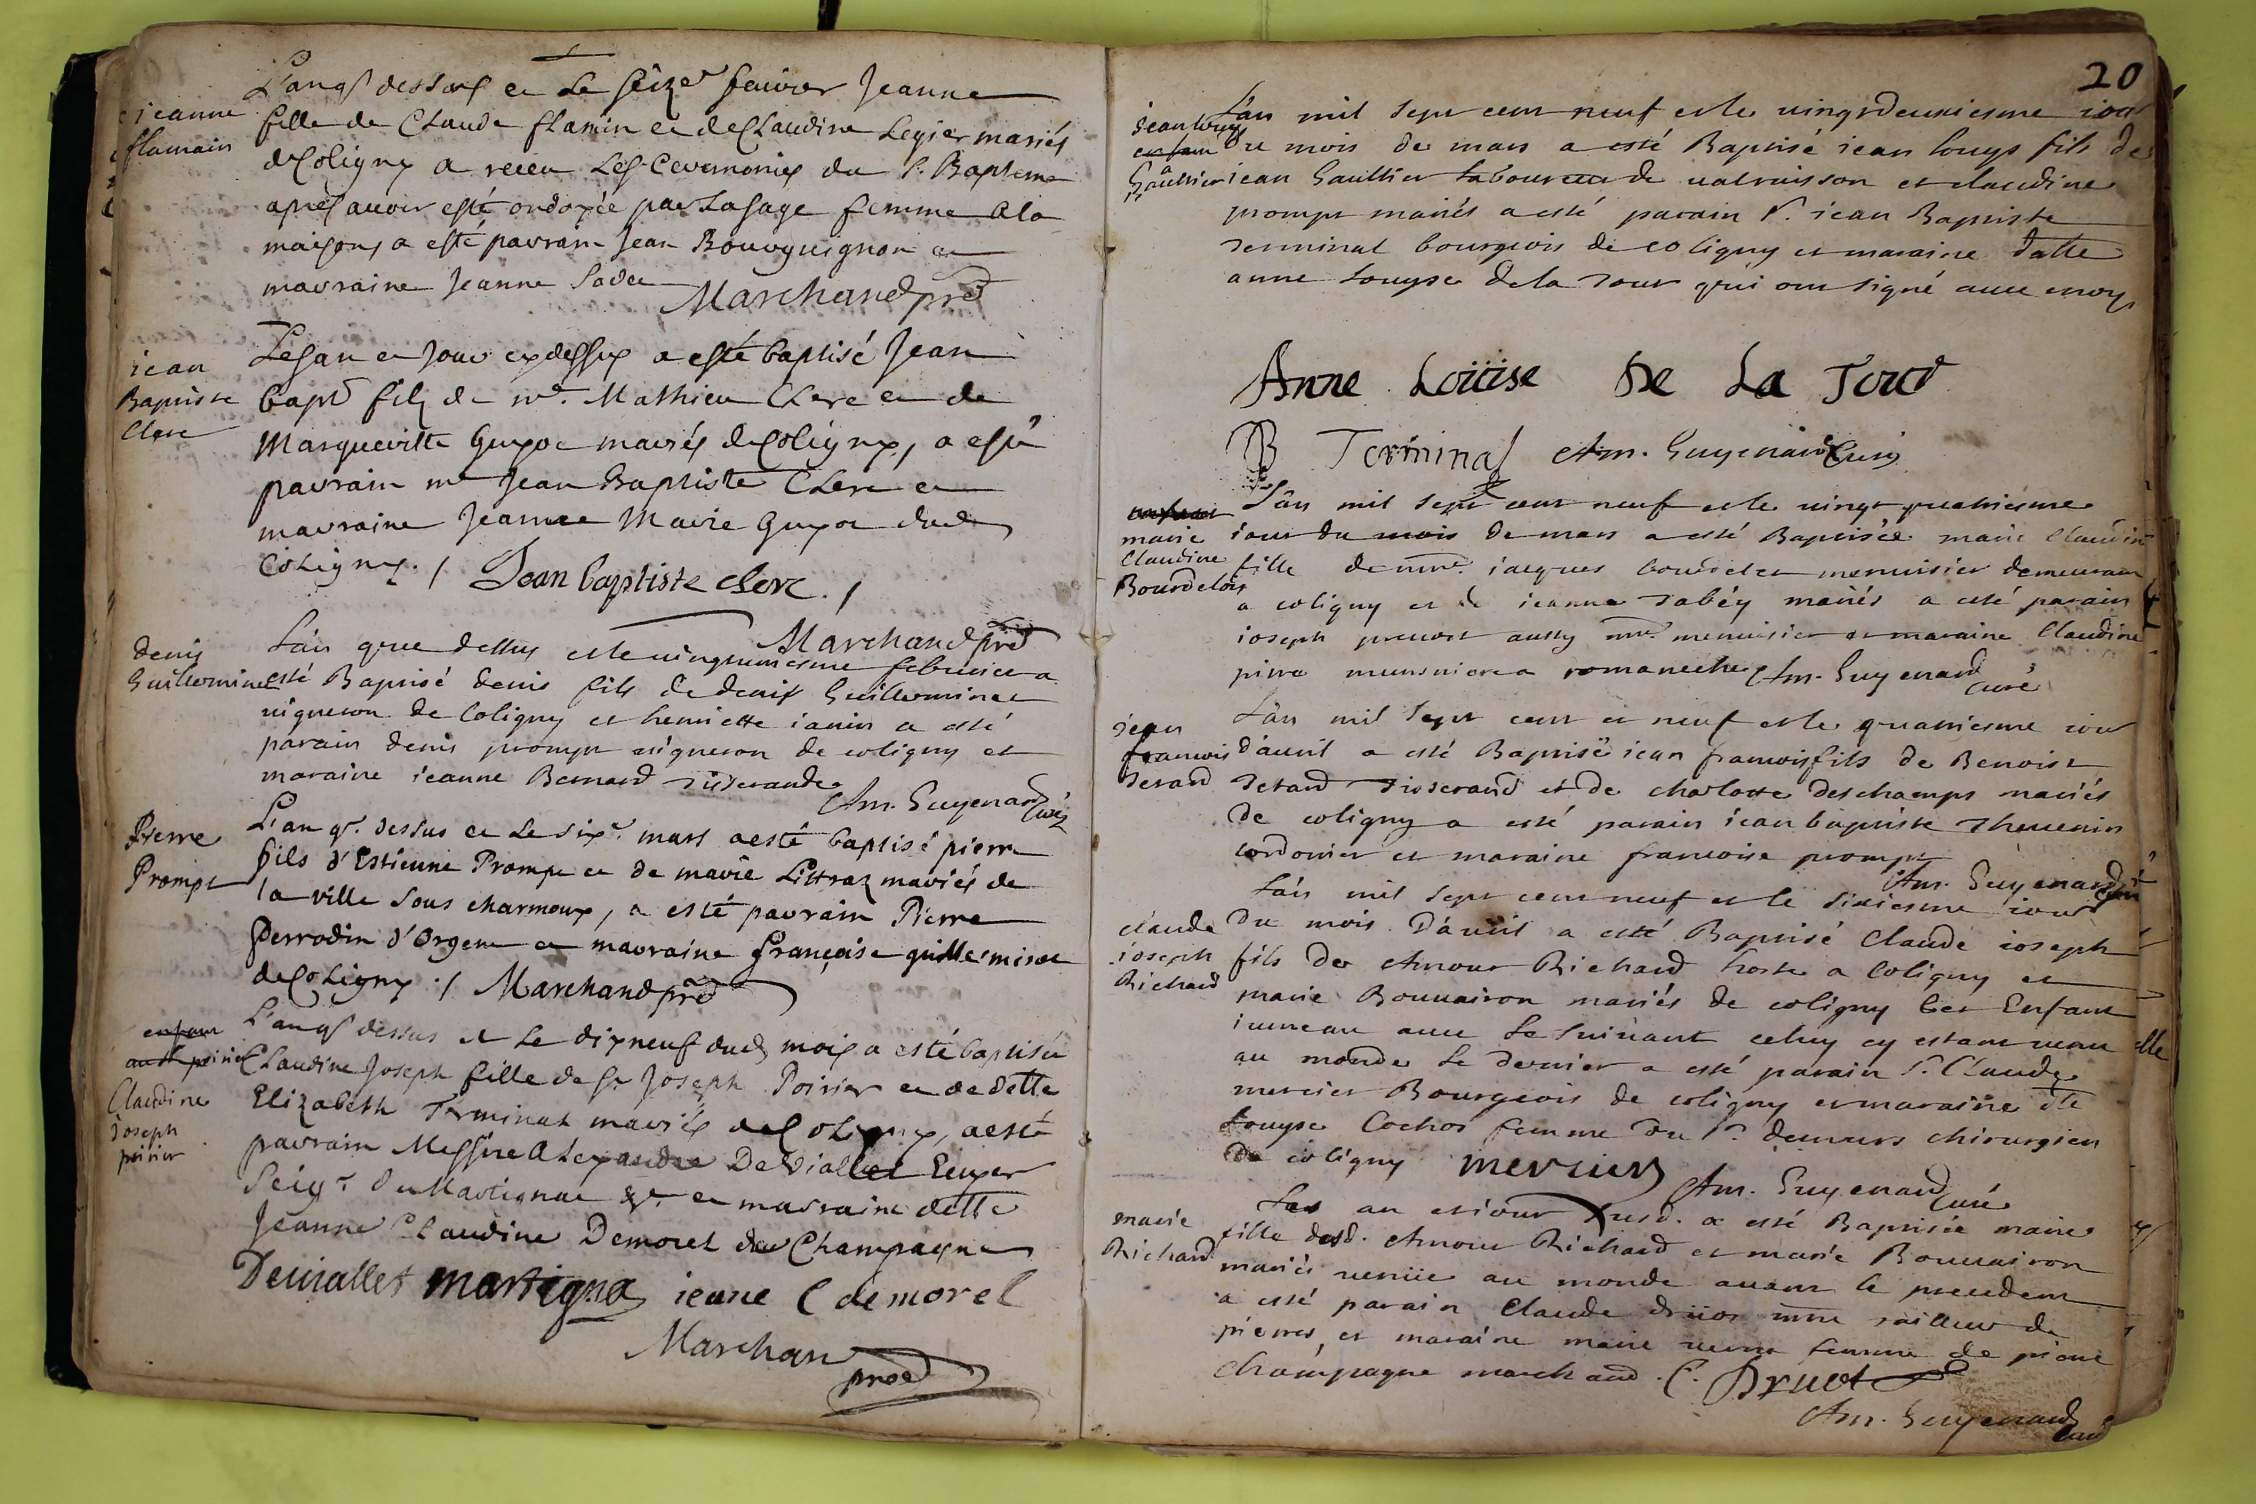 jeanne
flamain
L'an q^s dessus et le seize^e feuvrier Jeanne
fille de Claude flamin et de Claudine Legier mariés
de Coligny a receu les Ceremonies du S. Baptesme
apres avoir esté ondoyée par la sage femme a la
maison, a esté parrain Jean Bourguignon et
marraine Jeanne
Marchand prê
jean
Baptiste
Clerc
Les an et jour cy dessus a esté baptisé Jean
bapt^e fils de m^e. Mathieu Clerc et de
Margueritte Guyot mariés de Coligny, a esté
parrain m^e Jean Baptiste Clerc et
marraine Jeanne Marie Guyot dud
Coligny. / Jean baptiste clerc . /
Marchand prê
denis
Guillerminet
L'an que dessus et le vingtuniesme febvrier a
esté Baptisé denis fils de denis Guillerminet
vigneron de Coligny et henriette janin a esté
parain denis prompt vigneron de coligny et
maraine jeanne Bernard tisserande
Am. Guyenard curé
Pierre
Prompt
L'an q^e. dessus et le six^e. mars a esté baptisé pierre
fils d'Estienne Prompt et de marie Littraz mariés de
la ville sous charmoux, a esté parrain Pierre
Perrodin d'Orgent et marraine françoise guilleminet
de Coligny ./ Marchand prê
enfant
au S^r poirier
Claudine
joseph
poirier
L'an q^s dessus et le dixneuf dud mois a esté baptisée
Claudine Joseph fille de S^r Joseph Poirier et de dette
Elizabeth Terminat mariés de Coligny, a esté
parrain Messire Alexandre De Viallet Ecuyer
Seig^r. De Martignat &^c. et marraine dette
Jeanne Claudine Demorel de Champagne
Deviallet martigna jeane C demorel
Marchan
prê
20
jean louys
enfant
a
Gaultier
L'an mil sept cent neuf et le vingtdeuxiesme jour
du mois de mars a esté Baptisé jean louys fils de
jean Gaultier laboureur de valruisson et claudine
prompt mariés a esté parain S^r. jean Baptiste
terminat bourgeois de coligny et maraine dalle
anne louyse de la tour qui ont signé avec moy
Anne Loüise De La Tour
B Terminat Am. Guyenard Curé
marie
Claudine
Bourdelot
L'an mil sept cent neuf et le vingt quatriesme
jour du mois de mars a esté Baptisée marie Claudine
fille de m^re. jacques bourdelet menuisier demeurant
a coligny et de jeanne tabéy mariés a esté parain
joseph prevost aussy m^re. menuisier et maraine Claudine
pirre meusniere a romaneche Am. Guyenard
curé
jean
francois
Terard
L'an mil sept cent et neuf et le quatriesme jour
d'avril a esté Baptisé jean francois fils de Benoist
Terard Tisserand et de charlotte deschamps mariés
de coligny a esté parain jean baptiste Thevenin
cordonier et maraine francoise prompt
Am. Guyenard curé
claude
joseph
Richard
L'an mil sept cent neuf et le sixiesme jour
du mois d'avril a esté Baptisé Claude joseph
fils de Amour Richard hoste a Coligny et
marie Bouvairon mariés de coligny Cet Enfant
jumeau avec le suivant celuy cy estant venu elle
au monde le dernier a esté parain S^r. Claude
mercier Bourgeois de coligny et maraine dlle
Louyse Cochos femme du S^r. demurs chirurgien
de coligny mercier
Am. Guyenard curé
marie
Richard
Les an et jour susd. a esté Baptisée marie
fille dusd. Amour Richard et marie Bouvairon
mariés venüe au monde avant le precedent
a esté parain Claude drüot m^re tailleur de
pierres, et maraine marie verne femme de pierre
Champagne marchand. C. Druot
Am. Guyenard
curé